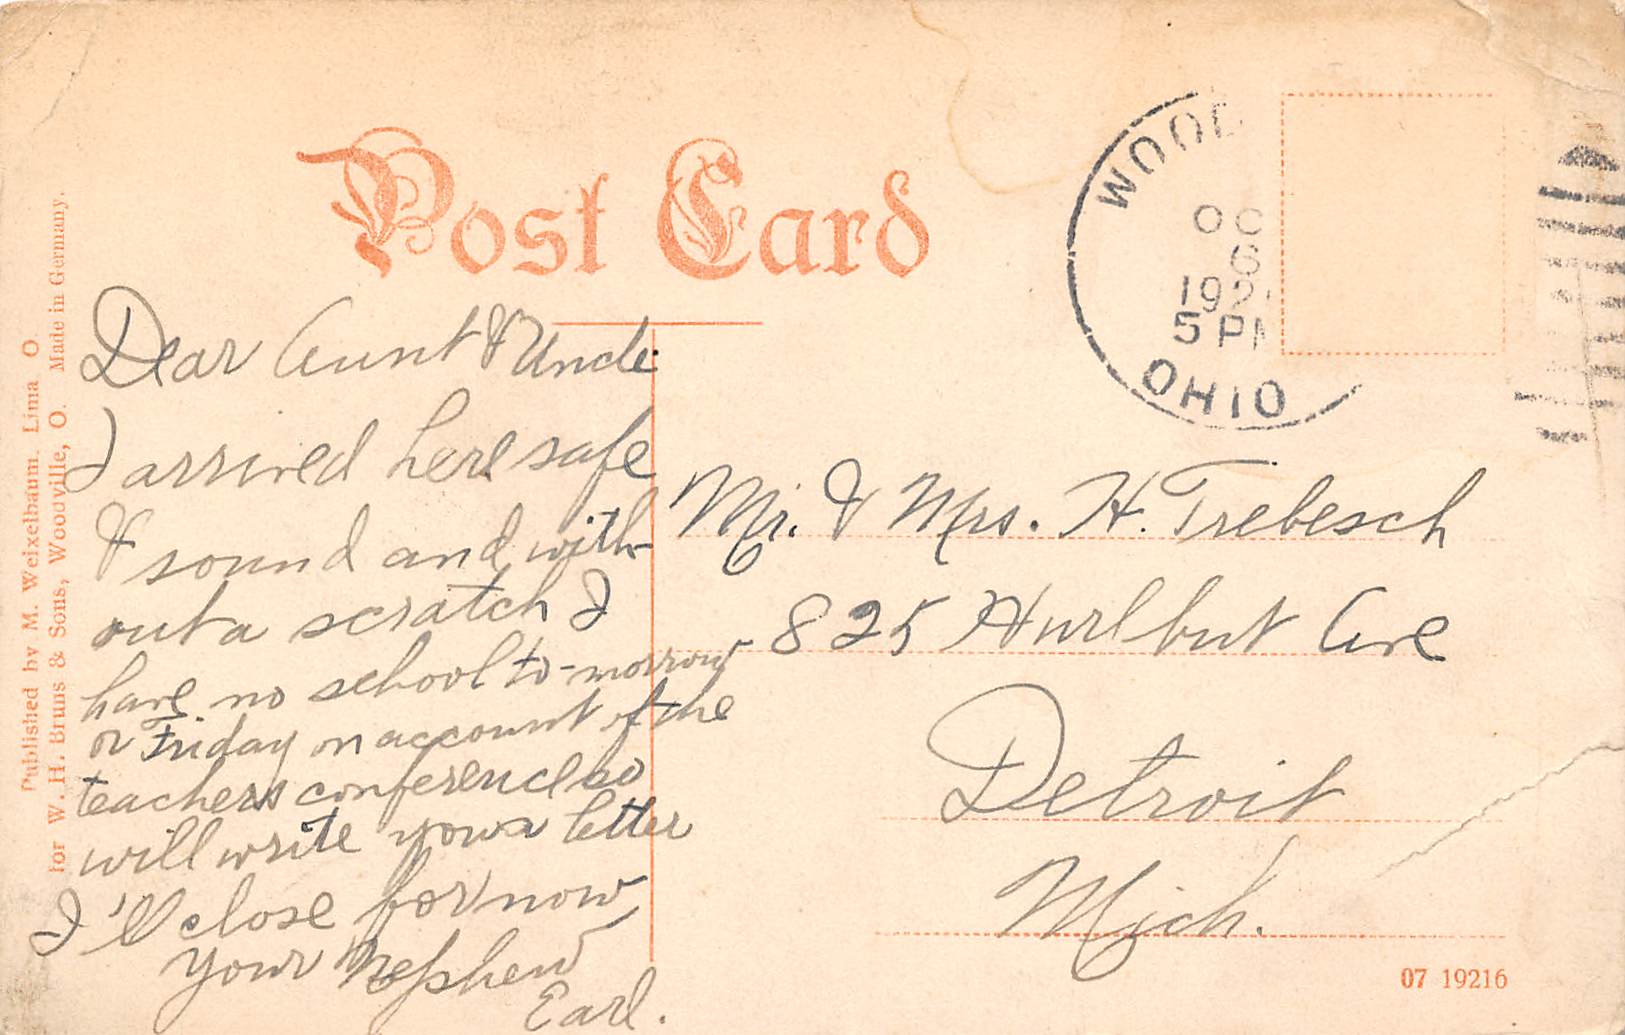 Post Card
WOOD
OC
6
192
5 PM
OHIO
Published by M. Weixelbaum. Lima O.
for W. H. Bruns & Sons, Woodville, O. Made in Germany.
Dear Aunt & Uncle
I arrived here safe
& sound and with
out a scratch I
have no school to-morrow
or Friday on account of the
teachers conference so
will write you a letter
I'll close for now
Your Nephew
Earl.
Mr. & Mrs. H. Trebesch
825 Hurlbut Ave
Detroit
Mich.
07 19216